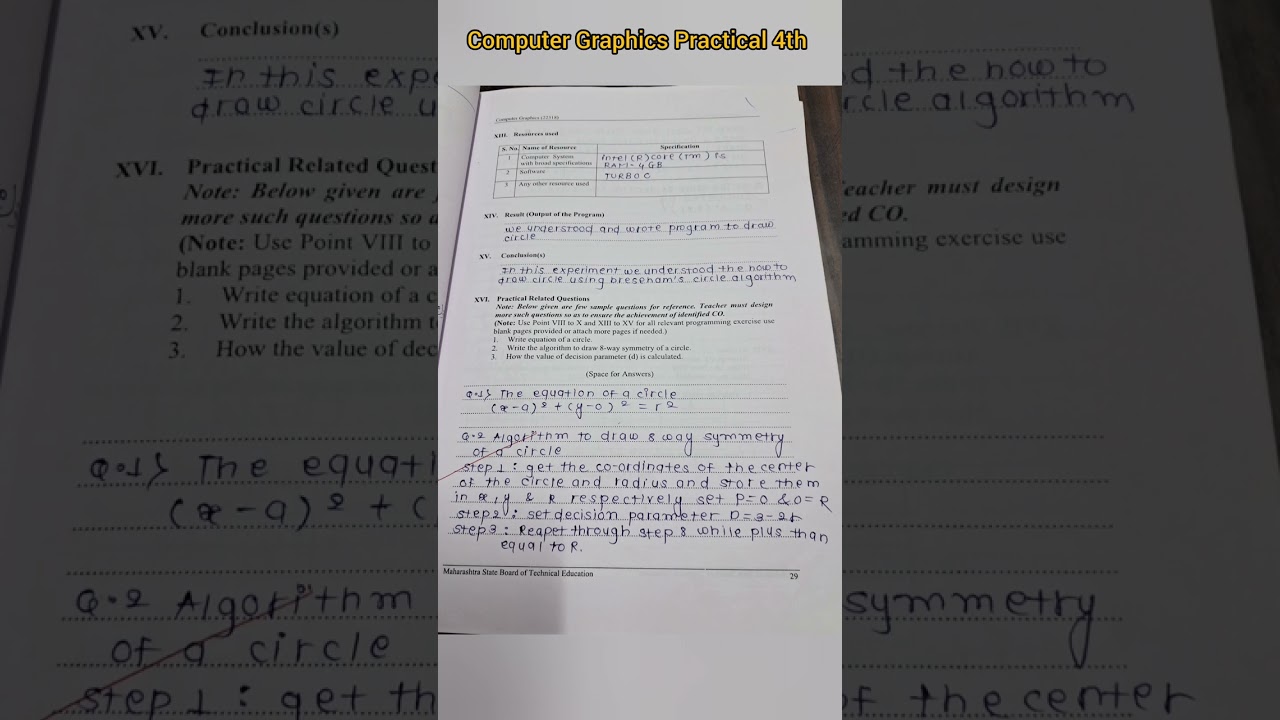 Computer Graphics Practical 4th
Computer Graphics (22318)
XIII. Resources used
S. No. Name of Resource Specification
1 Computer System with broad specifications Intel (R) core (Tm) i5 RAM- 4 GB
2 Software TURBO C
3 Any other resource used
XIV. Result (Output of the Program)
we understood and wrote program to draw
circle
XV. Conclusion(s)
In this experiment we understood the how to
draw circle using breseham's circle algorithm
XVI. Practical Related Questions
Note: Below given are few sample questions for reference. Teacher must design
more such questions so as to ensure the achievement of identified CO.
(Note: Use Point VIII to X and XIII to XV for all relevant programming exercise use
blank pages provided or attach more pages if needed.)
1. Write equation of a circle.
2. Write the algorithm to draw 8-way symmetry of a circle.
3. How the value of decision parameter (d) is calculated.
(Space for Answers)
Q.1} The equation of a circle
(x-a)2 + (y-o)2 = r2
Q.2 Algorithm to draw 8 way symmetry
of a circle
step 1 : get the co-ordinates of the center
of the circle and radius and store them
in x, y & R respectively set P=0 & O=R
step2 : set decision parameter D=3-2r
step3 : Reapet through step 8 while plus than
equal to R.
Maharashtra State Board of Technical Education 29